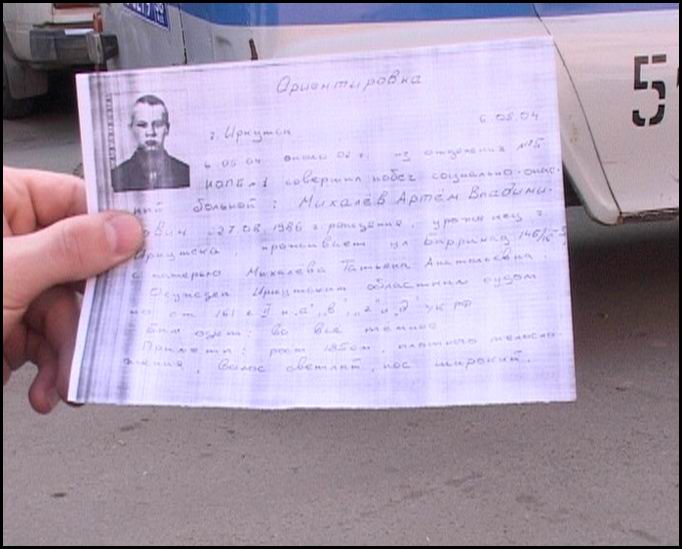 Ориентировка
6.05.04
г. Иркутск
6.05.04 около 02 г. из отделения №5
ИОПБ №1 совершил побег социально-опас-
ный больной: Михалев Артём Владими-
рович 27.08.1986 г рождения, уроженец г.
Иркутска, проживает ул Баррикад 146/
с матерью Михалева Татьяна Анатольевна.
Осужден Иркутским областным судом
по ст 161 ч II п „а", „в", „г" и „д" УК РФ
Был одет: во все темное
Приметы: рост 185см, плотного телосло-
жения, волос светлый, нос широкий.
5